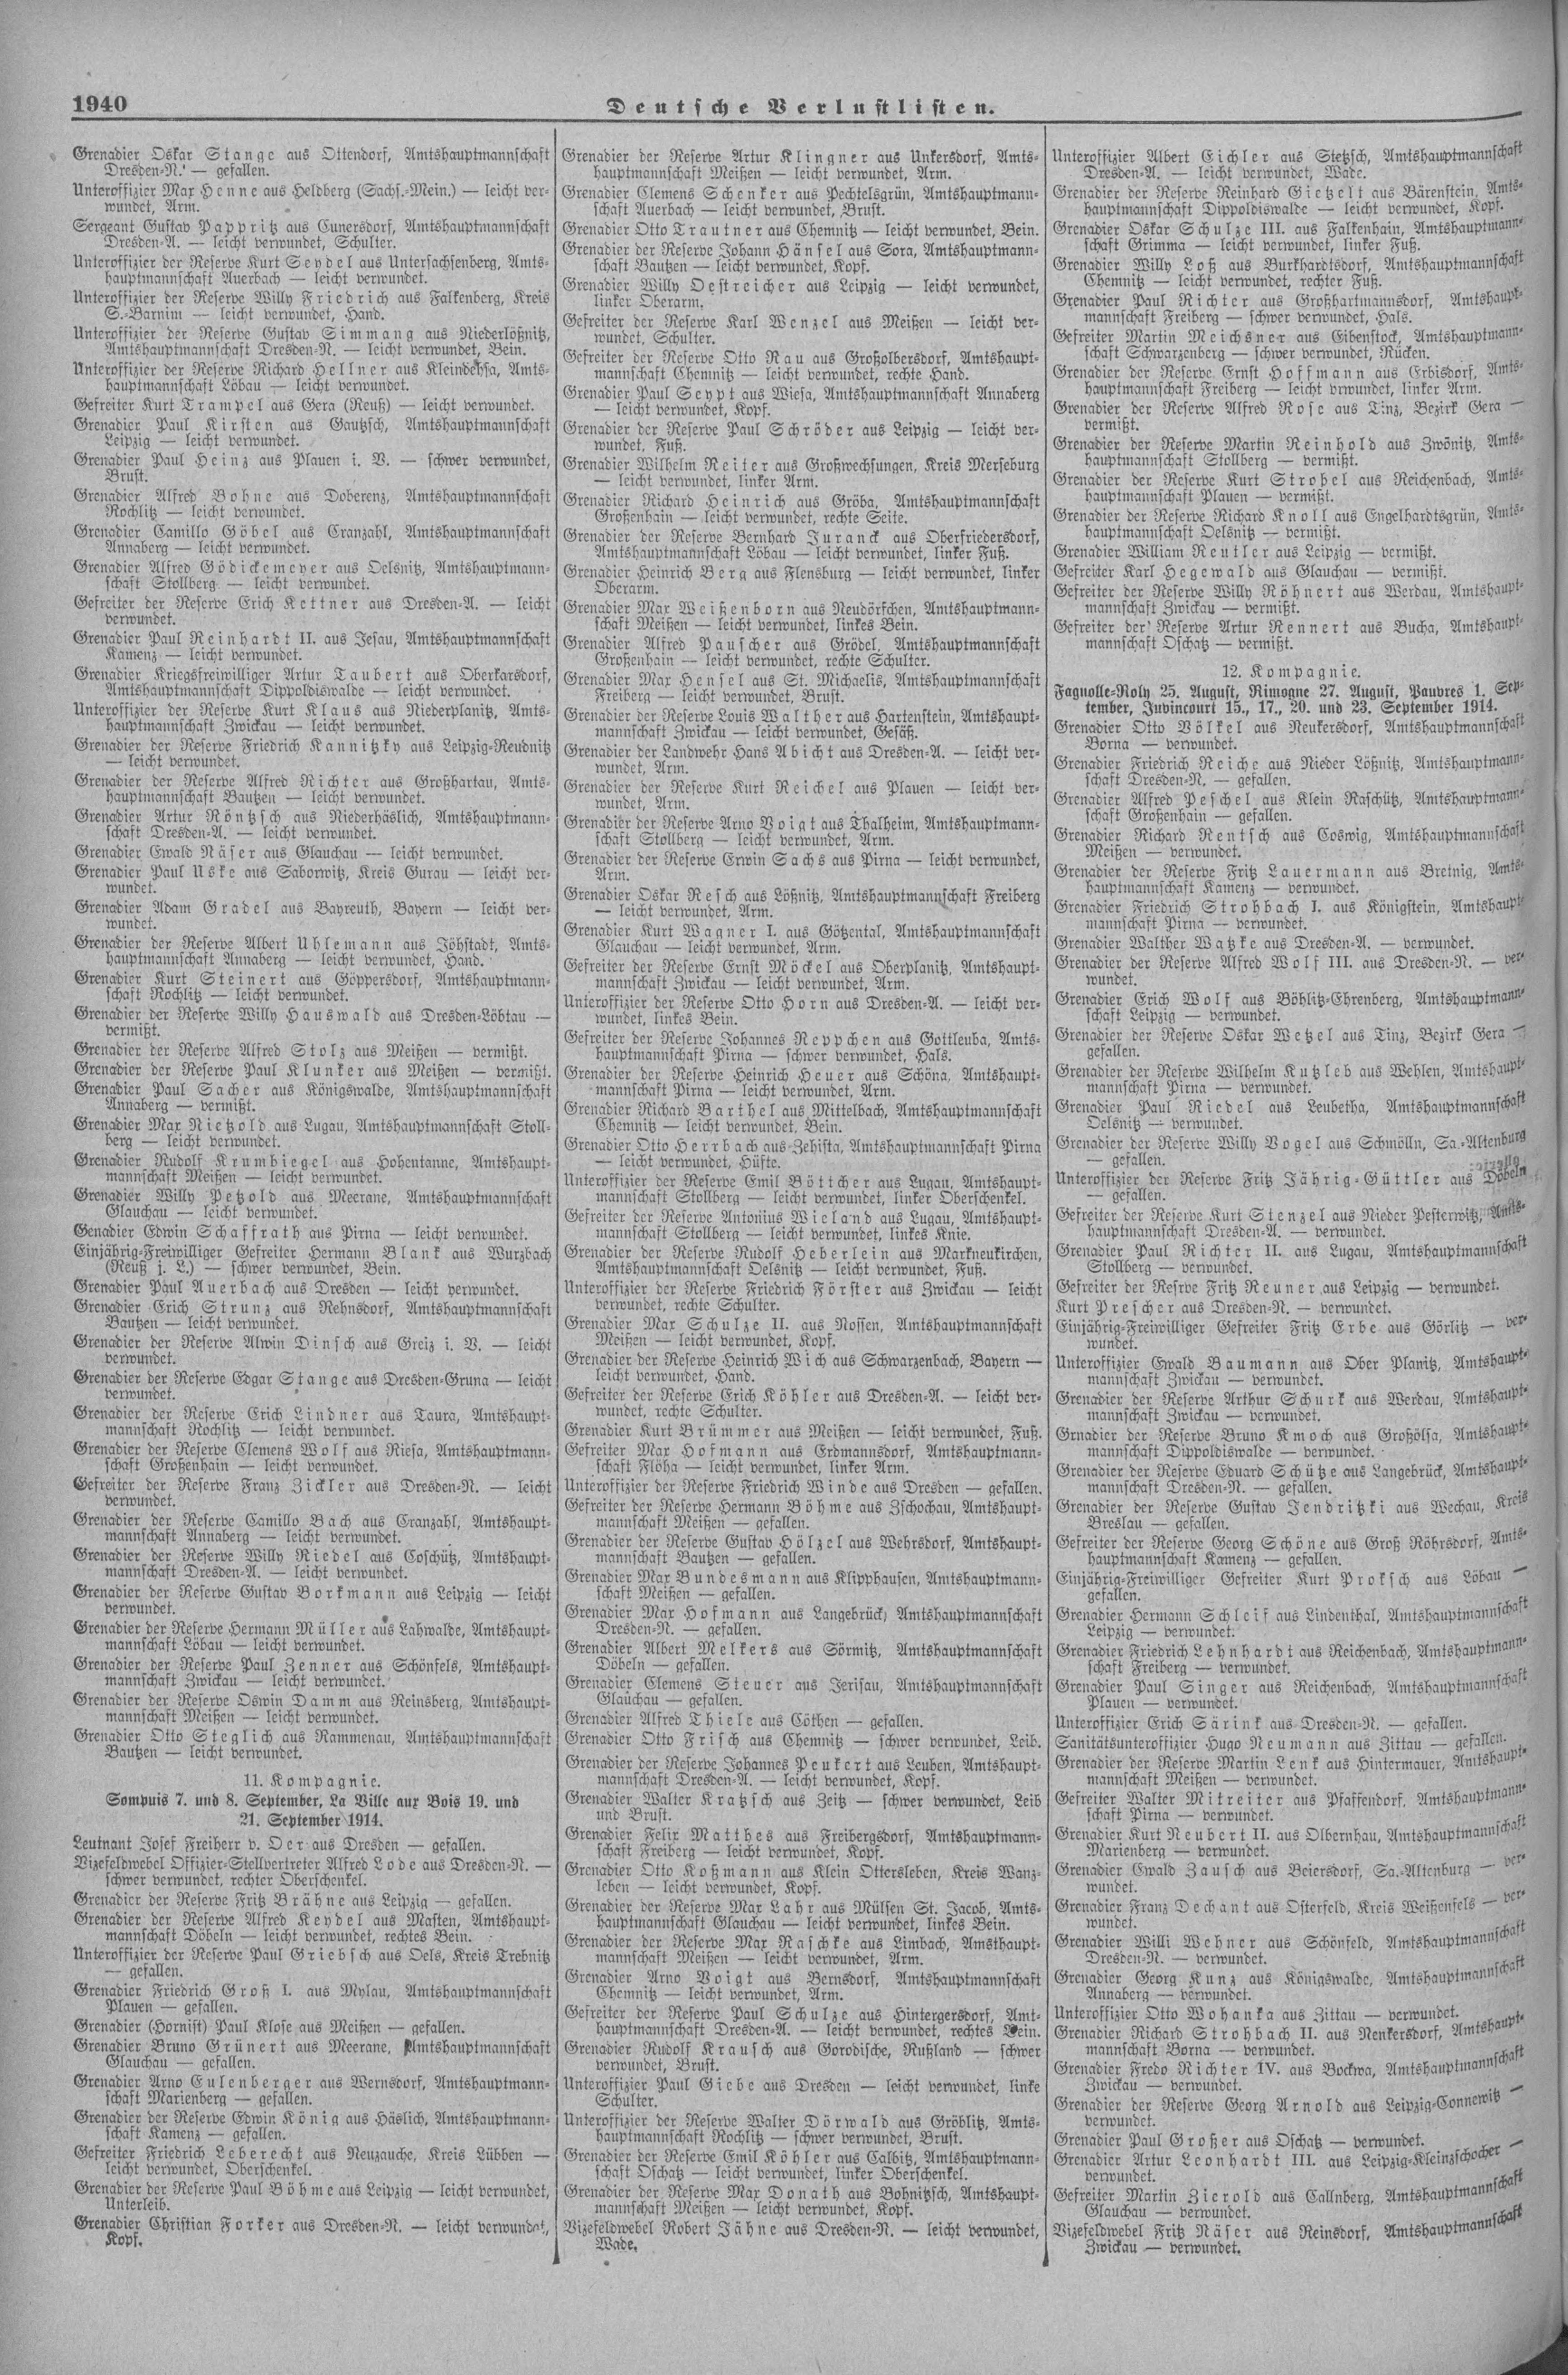 1940
Deutsche Verlustlisten.
Grenadier Oskar Stange aus Ottendorf, Amtshauptmannschaft
Dresden-N. — gefallen.
Unteroffizier Max Henne aus Heldberg (Sachs.-Mein.) — leicht ver-
wundet, Arm.
Sergeant Gustav Pappritz aus Cunersdorf, Amtshauptmannschaft
Dresden-A. — leicht verwundet, Schulter.
Unteroffizier der Reserve Kurt Seydel aus Untersachsenberg, Amts-
hauptmannschaft Auerbach — leicht verwundet.
Unteroffizier der Reserve Willy Friedrich aus Falkenberg, Kreis
S.-Barnim — leicht verwundet, Hand.
Unteroffizier der Reserve Gustav Simmang aus Niederlößnitz,
Amtshauptmannschaft Dresden-N. — leicht verwundet, Bein.
Unteroffizier der Reserve Richard Hellner aus Kleindehsa, Amts-
hauptmannschaft Löbau — leicht verwundet.
Gefreiter Kurt Trampel aus Gera (Reuß) — leicht verwundet.
Grenadier Paul Kirsten aus Gautzsch, Amtshauptmannschaft
Leipzig — leicht verwundet.
Grenadier Paul Heinz aus Plauen i. V. — schwer verwundet,
Brust.
Grenadier Alfred Bohne aus Doberenz, Amtshauptmannschaft
Rochlitz — leicht verwundet.
Grenadier Camillo Göbel aus Cranzahl, Amtshauptmannschaft
Annaberg — leicht verwundet.
Grenadier Alfred Gödickemeyer aus Oelsnitz, Amtshauptmann-
schaft Stollberg — leicht verwundet.
Gefreiter der Reserve Erich Kettner aus Dresden-A. — leicht
verwundet.
Grenadier Paul Reinhardt II. aus Jesau, Amtshauptmannschaft
Kamenz — leicht verwundet.
Grenadier Kriegsfreiwilliger Artur Taubert aus Oberkarsdorf,
Amtshauptmannschaft Dippoldiswalde — leicht verwundet.
Unteroffizier der Reserve Kurt Klaus aus Niederplanitz, Amts-
hauptmannschaft Zwickau — leicht verwundet.
Grenadier der Reserve Friedrich Kannitzky aus Leipzig-Reudnitz
— leicht verwundet.
Grenadier der Reserve Alfred Richter aus Großhartau, Amts-
hauptmannschaft Bautzen — leicht verwundet.
Grenadier Artur Röntzsch aus Niederhäslich, Amtshauptmann-
schaft Dresden-A. — leicht verwundet.
Grenadier Ewald Näser aus Glauchau — leicht verwundet.
Grenadier Paul Uske aus Saborwitz, Kreis Gurau — leicht ver-
wundet.
Grenadier Adam Gradel aus Bayreuth, Bayern — leicht ver-
wundet.
Grenadier der Reserve Albert Uhlemann aus Jöhstadt, Amts-
hauptmannschaft Annaberg — leicht verwundet, Hand.
Grenadier Kurt Steinert aus Göppersdorf, Amtshauptmann-
schaft Rochlitz — leicht verwundet.
Grenadier der Reserve Willy Hauswald aus Dresden-Löbtau —
vermißt.
Grenadier der Reserve Alfred Stolz aus Meißen — vermißt.
Grenadier der Reserve Paul Klunker aus Meißen — vermißt.
Grenadier Paul Sacher aus Königswalde, Amtshauptmannschaft
Annaberg — vermißt.
Grenadier Max Nietzold aus Lugau, Amtshauptmannschaft Stoll-
berg — leicht verwundet.
Grenadier Rudolf Krumbiegel aus Hohentanne, Amtshaupt-
mannschaft Meißen — leicht verwundet.
Grenadier Willy Petzold aus Meerane, Amtshauptmannschaft
Glauchau — leicht verwundet.
Genadier Edwin Schaffrath aus Pirna — leicht verwundet.
Einjährig-Freiwilliger Gefreiter Hermann Blank aus Wurzbach
(Reuß j. L.) — schwer verwundet, Bein.
Grenadier Paul Auerbach aus Dresden — leicht verwundet.
Grenadier Erich Strunz aus Rehnsdorf, Amtshauptmannschaft
Bautzen — leicht verwundet.
Grenadier der Reserve Alwin Dinsch aus Greiz i. V. — leicht
verwundet.
Grenadier der Reserve Edgar Stange aus Dresden-Gruna — leicht
verwundet.
Grenadier der Reserve Erich Lindner aus Taura, Amtshaupt-
mannschaft Rochlitz — leicht verwundet.
Grenadier der Reserve Clemens Wolf aus Riesa, Amtshauptmann-
schaft Großenhain — leicht verwundet.
Gefreiter der Reserve Franz Zickler aus Dresden-N. — leicht
verwundet.
Grenadier der Reserve Camillo Bach aus Cranzahl, Amtshaupt-
mannschaft Annaberg — leicht verwundet.
Grenadier der Reserve Willy Riedel aus Coschütz, Amtshaupt-
mannschaft Dresden-A. — leicht verwundet.
Grenadier der Reserve Gustav Borkmann aus Leipzig — leicht
verwundet.
Grenadier der Reserve Hermann Müller aus Lahwalde, Amtshaupt-
mannschaft Löbau — leicht verwundet.
Grenadier der Reserve Paul Zenner aus Schönfels, Amtshaupt-
mannschaft Zwickau — leicht verwundet.
Grenadier der Reserve Oswin Damm aus Reinsberg, Amtshaupt-
mannschaft Meißen — leicht verwundet.
Grenadier Otto Steglich aus Rammenau, Amtshauptmannschaft
Bautzen — leicht verwundet.
11. Kompagnie.
Sompuis 7. und 8. September, La Ville aux Bois 19. und
21. September 1914.
Leutnant Josef Freiherr v. Oer aus Dresden — gefallen.
Vizefeldwebel Offizier-Stellvertreter Alfred Lode aus Dresden-N. —
schwer verwundet, rechter Oberschenkel.
Grenadier der Reserve Fritz Brähne aus Leipzig — gefallen.
Grenadier der Reserve Alfred Keydel aus Masten, Amtshaupt-
mannschaft Döbeln — leicht verwundet, rechtes Bein.
Unteroffizier der Reserve Paul Griebsch aus Oels, Kreis Trebnitz
— gefallen.
Grenadier Friedrich Groß I. aus Mylau, Amtshauptmannschaft
Plauen — gefallen.
Grenadier (Hornist) Paul Klose aus Meißen — gefallen.
Grenadier Bruno Grünert aus Meerane, Amtshauptmannschaft
Glauchau — gefallen.
Grenadier Arno Eulenberger aus Wernsdorf, Amtshauptmann-
schaft Marienberg — gefallen.
Grenadier der Reserve Edwin König aus Häslich, Amtshauptmann-
schaft Kamenz — gefallen.
Gefreiter Friedrich Leberecht aus Neuzauche, Kreis Lübben —
leicht verwundet, Oberschenkel.
Grenadier der Reserve Paul Böhme aus Leipzig — leicht verwundet,
Unterleib.
Grenadier Christian Forker aus Dresden-N. — leicht verwundet,
Kopf.
Grenadier der Reserve Artur Klingner aus Unkersdorf, Amts-
hauptmannschaft Meißen — leicht verwundet, Arm.
Grenadier Clemens Schenker aus Pechtelsgrün, Amtshauptmann-
schaft Auerbach — leicht verwundet, Brust.
Grenadier Otto Trautner aus Chemnitz — leicht verwundet, Bein.
Grenadier der Reserve Johann Hänsel aus Sora, Amtshauptmann-
schaft Bautzen — leicht verwundet, Kopf.
Grenadier Willy Oestreicher aus Leipzig — leicht verwundet,
linker Oberarm.
Gefreiter der Reserve Karl Wenzel aus Meißen — leicht ver-
wundet, Schulter.
Gefreiter der Reserve Otto Rau aus Großolbersdorf, Amtshaupt-
mannschaft Chemnitz — leicht verwundet, rechte Hand.
Grenadier Paul Seypt aus Wiesa, Amtshauptmannschaft Annaberg
— leicht verwundet, Kopf.
Grenadier der Reserve Paul Schröder aus Leipzig — leicht ver-
wundet, Fuß.
Grenadier Wilhelm Reiter aus Großwechsungen, Kreis Merseburg
— leicht verwundet, linker Arm.
Grenadier Richard Heinrich aus Gröba, Amtshauptmannschaft
Großenhain — leicht verwundet, rechte Seite.
Grenadier der Reserve Bernhard Juranck aus Oberfriedersdorf,
Amtshauptmannschaft Löbau — leicht verwundet, linker Fuß.
Grenadier Heinrich Berg aus Flensburg — leicht verwundet, linker
Oberarm.
Grenadier Max Weißenborn aus Neudörfchen, Amtshauptmann-
schaft Meißen — leicht verwundet, linkes Bein.
Grenadier Alfred Pauscher aus Grödel, Amtshauptmannschaft
Großenhain — leicht verwundet, rechte Schulter.
Grenadier Max Hensel aus St. Michaelis, Amtshauptmannschaft
Freiberg — leicht verwundet, Brust.
Grenadier der Reserve Louis Walther aus Hartenstein, Amtshaupt-
mannschaft Zwickau — leicht verwundet, Gesäß.
Grenadier der Landwehr Hans Abicht aus Dresden-A. — leicht ver-
wundet, Arm.
Grenadier der Reserve Kurt Reichel aus Plauen — leicht ver-
wundet, Arm.
Grenadier der Reserve Arno Voigt aus Thalheim, Amtshauptmann-
schaft Stollberg — leicht verwundet, Arm.
Grenadier der Reserve Erwin Sachs aus Pirna — leicht verwundet,
Arm.
Grenadier Oskar Resch aus Lößnitz, Amtshauptmannschaft Freiberg
— leicht verwundet, Arm.
Grenadier Kurt Wagner I. aus Götzental, Amtshauptmannschaft
Glauchau — leicht verwundet, Arm.
Gefreiter der Reserve Ernst Möckel aus Oberplanitz, Amtshaupt-
mannschaft Zwickau — leicht verwundet, Arm.
Unteroffizier der Reserve Otto Horn aus Dresden-A. — leicht ver-
wundet, linkes Bein.
Gefreiter der Reserve Johannes Neppchen aus Gottleuba, Amts-
hauptmannschaft Pirna — schwer verwundet, Hals.
Grenadier der Reserve Heinrich Heuer aus Schöna, Amtshaupt-
mannschaft Pirna — leicht verwundet, Arm.
Grenadier Richard Barthel aus Mittelbach, Amtshauptmannschaft
Chemnitz — leicht verwundet, Bein.
Grenadier Otto Herrbach aus Zehista, Amtshauptmannschaft Pirna
— leicht verwundet, Hüfte.
Unteroffizier der Reserve Emil Böttcher aus Lugau, Amtshaupt-
mannschaft Stollberg — leicht verwundet, linker Oberschenkel.
Gefreiter der Reserve Antonius Wieland aus Lugau, Amtshaupt-
mannschaft Stollberg — leicht verwundet, linkes Knie.
Grenadier der Reserve Rudolf Heberlein aus Markneukirchen,
Amtshauptmannschaft Oelsnitz — leicht verwundet, Fuß.
Unteroffizier der Reserve Friedrich Förster aus Zwickau — leicht
verwundet, rechte Schulter.
Grenadier Max Schulze II. aus Nossen, Amtshauptmannschaft
Meißen — leicht verwundet, Kopf.
Grenadier der Reserve Heinrich Wich aus Schwarzenbach, Bayern —
leicht verwundet, Hand.
Gefreiter der Reserve Erich Köhler aus Dresden-A. — leicht ver-
wundet, rechte Schulter.
Grenadier Kurt Brümmer aus Meißen — leicht verwundet, Fuß.
Gefreiter Max Hofmann aus Erdmannsdorf, Amtshauptmann-
schaft Flöha — leicht verwundet, linker Arm.
Unteroffizier der Reserve Friedrich Winde aus Dresden — gefallen.
Gefreiter der Reserve Hermann Böhme aus Zschochau, Amtshaupt-
mannschaft Meißen — gefallen.
Grenadier der Reserve Gustav Hölzel aus Wehrsdorf, Amtshaupt-
mannschaft Bautzen — gefallen.
Grenadier Max Bundesmann aus Klipphausen, Amtshauptmann-
schaft Meißen — gefallen.
Grenadier Max Hofmann aus Langebrück, Amtshauptmannschaft
Dresden-N. — gefallen.
Grenadier Albert Melkers aus Sörmitz, Amtshauptmannschaft
Döbeln — gefallen.
Grenadier Clemens Steuer aus Jerisau, Amtshauptmannschaft
Glauchau — gefallen.
Grenadier Alfred Thiele aus Cöthen — gefallen.
Grenadier Otto Frisch aus Chemnitz — schwer verwundet, Leib.
Grenadier der Reserve Johannes Peukert aus Leuben, Amtshaupt-
mannschaft Dresden-A. — leicht verwundet, Kopf.
Grenadier Walter Kratzsch aus Zeitz — schwer verwundet, Leib
und Brust.
Grenadier Felix Matthes aus Freibergsdorf, Amtshauptmann-
schaft Freiberg — leicht verwundet, Kopf.
Grenadier Otto Koßmann aus Klein Ottersleben, Kreis Wanz-
leben — leicht verwundet, Kopf.
Grenadier der Reserve Max Lahr aus Mülsen St. Jacob, Amts-
hauptmannschaft Glauchau — leicht verwundet, linkes Bein.
Grenadier der Reserve Max Raschke aus Limbach, Amsthaupt-
mannschaft Meißen — leicht verwundet, Arm.
Grenadier Arno Voigt aus Bernsdorf, Amtshauptmannschaft
Chemnitz — leicht verwundet, Arm.
Gefreiter der Reserve Paul Schulze aus Hintergersdorf, Amt-
hauptmannschaft Dresden-A. — leicht verwundet, rechtes Bein.
Grenadier Rudolf Krausch aus Gorodische, Rußland — schwer
verwundet, Brust.
Unteroffizier Paul Giebe aus Dresden — leicht verwundet, linke
Schulter.
Unteroffizier der Reserve Walter Dörwald aus Gröblitz, Amts-
hauptmannschaft Rochlitz — schwer verwundet, Brust.
Grenadier der Reserve Emil Köhler aus Calbitz, Amtshauptmann-
schaft Oschatz — leicht verwundet, linker Oberschenkel.
Grenadier der Reserve Max Donath aus Bohnitzsch, Amtshaupt-
mannschaft Meißen — leicht verwundet, Kopf.
Vizefeldwebel Robert Jähne aus Dresden-N. — leicht verwundet,
Wade.
Unteroffizier Albert Eichler aus Stetzsch, Amtshauptmannschaft
Dresden-A. — leicht verwundet, Wade.
Grenadier der Reserve Reinhard Gietzelt aus Bärenstein, Amts-
hauptmannschaft Dippoldiswalde — leicht verwundet, Kopf.
Grenadier Oskar Schulze III. aus Falkenhain, Amtshauptmann-
schaft Grimma — leicht verwundet, linker Fuß.
Grenadier Willy Loß aus Burkhardtsdorf, Amtshauptmannschaft
Chemnitz — leicht verwundet, rechter Fuß.
Grenadier Paul Richter aus Großhartmannsdorf, Amtshaupt-
mannschaft Freiberg — schwer verwundet, Hals.
Gefreiter Martin Meichsner aus Eibenstock, Amtshauptmann-
schaft Schwarzenberg — schwer verwundet, Rücken.
Grenadier der Reserve Ernst Hoffmann aus Erbisdorf, Amts-
hauptmannschaft Freiberg — leicht vrwundet, linker Arm.
Grenadier der Reserve Alfred Rose aus Tinz, Bezirk Gera —
vermißt.
Grenadier der Reserve Martin Reinhold aus Zwönitz, Amts-
hauptmannschaft Stollberg — vermißt.
Grenadier der Reserve Kurt Strobel aus Reichenbach, Amts-
hauptmannschaft Plauen — vermißt.
Grenadier der Reserve Richard Knoll aus Engelhardtsgrün, Amts-
hauptmannschaft Oelsnitz — vermißt.
Grenadier William Reutler aus Leipzig — vermißt.
Gefreiter Karl Hegewald aus Glauchau — vermißt.
Gefreiter der Reserve Willy Röhnert aus Werdau, Amtshaupt-
mannschaft Zwickau — vermißt.
Gefreiter der Reserve Artur Rennert aus Bucha, Amtshaupt-
mannschaft Oschatz — vermißt.
12. Kompagnie.
Fagnolle-Roly 25. August, Rimogne 27. August, Pauvres 1. Sep-
tember, Juvincourt 15., 17., 20. und 23. September 1914.
Grenadier Otto Völkel aus Neukersdorf, Amtshauptmannschaft
Borna — verwundet.
Grenadier Friedrich Reiche aus Nieder Lößnitz, Amtshauptmann-
schaft Dresden-N. — gefallen.
Grenadier Alfred Peschel aus Klein Raschütz, Amtshauptmann-
schaft Großenhain — gefallen.
Grenadier Richard Rentsch aus Coswig, Amtshauptmannschaft
Meißen — verwundet.
Grenadier der Reserve Fritz Lauermann aus Bretnig, Amts-
hauptmannschaft Kamenz — verwundet.
Grenadier Friedrich Strohbach I. aus Königstein, Amtshaupt-
mannschaft Pirna — verwundet.
Grenadier Walther Watzke aus Dresden-A. — verwundet.
Grenadier der Reserve Alfred Wolf III. aus Dresden-N. — ver-
wundet.
Grenadier Erich Wolf aus Böhlitz-Ehrenberg, Amtshauptmann-
schaft Leipzig — verwundet.
Grenadier der Reserve Oskar Wetzel aus Tinz, Bezirk Gera —
gefallen.
Grenadier der Reserve Wilhelm Kutzleb aus Wehlen, Amtshaupt-
mannschaft Pirna — verwundet.
Grenadier Paul Riedel aus Leubetha, Amtshauptmannschaft
Oelsnitz — verwundet.
Grenadier der Reserve Willy Vogel aus Schmölln, Sa.-Altenburg
— gefallen.
Unteroffizier der Reserve Fritz Jährig-Güttler aus Döbeln
— gefallen.
Gefreiter der Reserve Kurt Stenzel aus Nieder Pesterwitz, Amts-
hauptmannschaft Dresden-A. — verwundet.
Grenadier Paul Richter II. aus Lugau, Amtshauptmannschaft
Stollberg — verwundet.
Gefreiter der Resrve Fritz Reuner aus Leipzig — verwundet.
Kurt Prescher aus Dresden-N. — verwundet.
Einjährig-Freiwilliger Gefreiter Fritz Erbe aus Görlitz — ver-
wundet.
Unteroffizier Ewald Baumann aus Ober Planitz, Amtshaupt-
mannschaft Zwickau — verwundet.
Grenadier der Reserve Arthur Schurk aus Werdau, Amtshaupt-
mannschaft Zwickau — verwundet.
Grnadier der Reserve Bruno Kmoch aus Großölsa, Amtshaupt-
mannschaft Dippoldiswalde — verwundet.
Grenadier der Reserve Eduard Schütze aus Langebrück, Amtshaupt-
mannschaft Dresden-N. — gefallen.
Grenadier der Reserve Gustav Jendritzki aus Wechau, Kreis
Breslau — gefallen.
Gefreiter der Reserve Georg Schöne aus Groß Röhrsdorf, Amts-
hauptmannschaft Kamenz — gefallen.
Einjährig-Freiwilliger Gefreiter Kurt Proksch aus Löbau —
gefallen.
Grenadier Hermann Schleif aus Lindenthal, Amtshauptmannschaft
Leipzig — verwundet.
Grenadier Friedrich Lehnhardt aus Reichenbach, Amtshauptmann-
schaft Freiberg — verwundet.
Grenadier Paul Singer aus Reichenbach, Amtshauptmannschaft
Plauen — verwundet.
Unteroffizier Erich Särink aus Dresden-N. — gefallen.
Sanitätsunteroffizier Hugo Neumann aus Zittau — gefallen.
Grenadier der Reserve Martin Lenk aus Hintermauer, Amtshaupt-
mannschaft Meißen — verwundet.
Gefreiter Walter Mitreiter aus Pfaffendorf, Amtshauptmann-
schaft Pirna — verwundet.
Grenadier Kurt Neubert II. aus Olbernhau, Amtshauptmannschaft
Marienberg — verwundet.
Grenadier Ewald Zausch aus Beiersdorf, Sa.-Altenburg — ver-
wundet.
Grenadier Franz Dechant aus Osterfeld, Kreis Weißenfels — ver-
wundet.
Grenadier Willi Wehner aus Schönfeld, Amtshauptmannschaft
Dresden-N. — verwundet.
Grenadier Georg Kunz aus Königswalde, Amtshauptmannschaft
Annaberg — verwundet.
Unteroffizier Otto Wohanka aus Zittau — verwundet.
Grenadier Richard Strohbach II. aus Nenkersdorf, Amtshaupt-
mannschaft Borna — verwundet.
Grenadier Fredo Richter IV. aus Bockwa, Amtshauptmannschaft
Zwickau — verwundet.
Grenadier der Reserve Georg Arnold aus Leipzig-Connewitz —
verwundet.
Grenadier Paul Großer aus Oschatz — verwundet.
Grenadier Artur Leonhardt III. aus Leipzig-Kleinzschocher —
verwundet.
Gefreiter Martin Zierold aus Callnberg, Amtshauptmannschaft
Glauchau — verwundet.
Vizefeldwebel Fritz Näser aus Reinsdorf, Amtshauptmannschaft
Zwickau — verwundet.